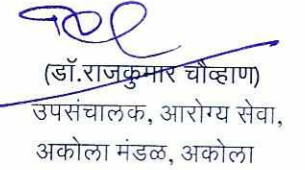 (डॉ.राजकुमार चौव्हाण)
उपसंचालक, आरोग्य सेवा,
अकोला मंडळ, अकोला